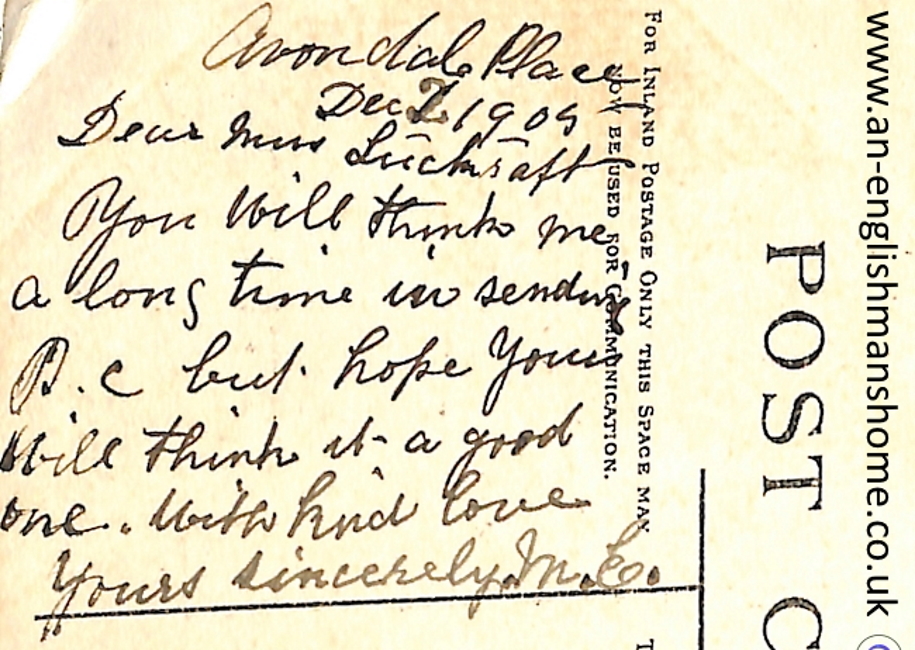 Avondale Place
Dec 2 1909
Dear Miss Luckraft
You Will think me
a long time in sending
P.c but hope Your
Will think it a good
one. With kind love
Yours sincerely M.E.
FOR INLAND POSTAGE ONLY THIS SPACE MAY
NOW BE USED FOR COMMUNICATION.
POST C
www.an-englishmanshome.co.uk